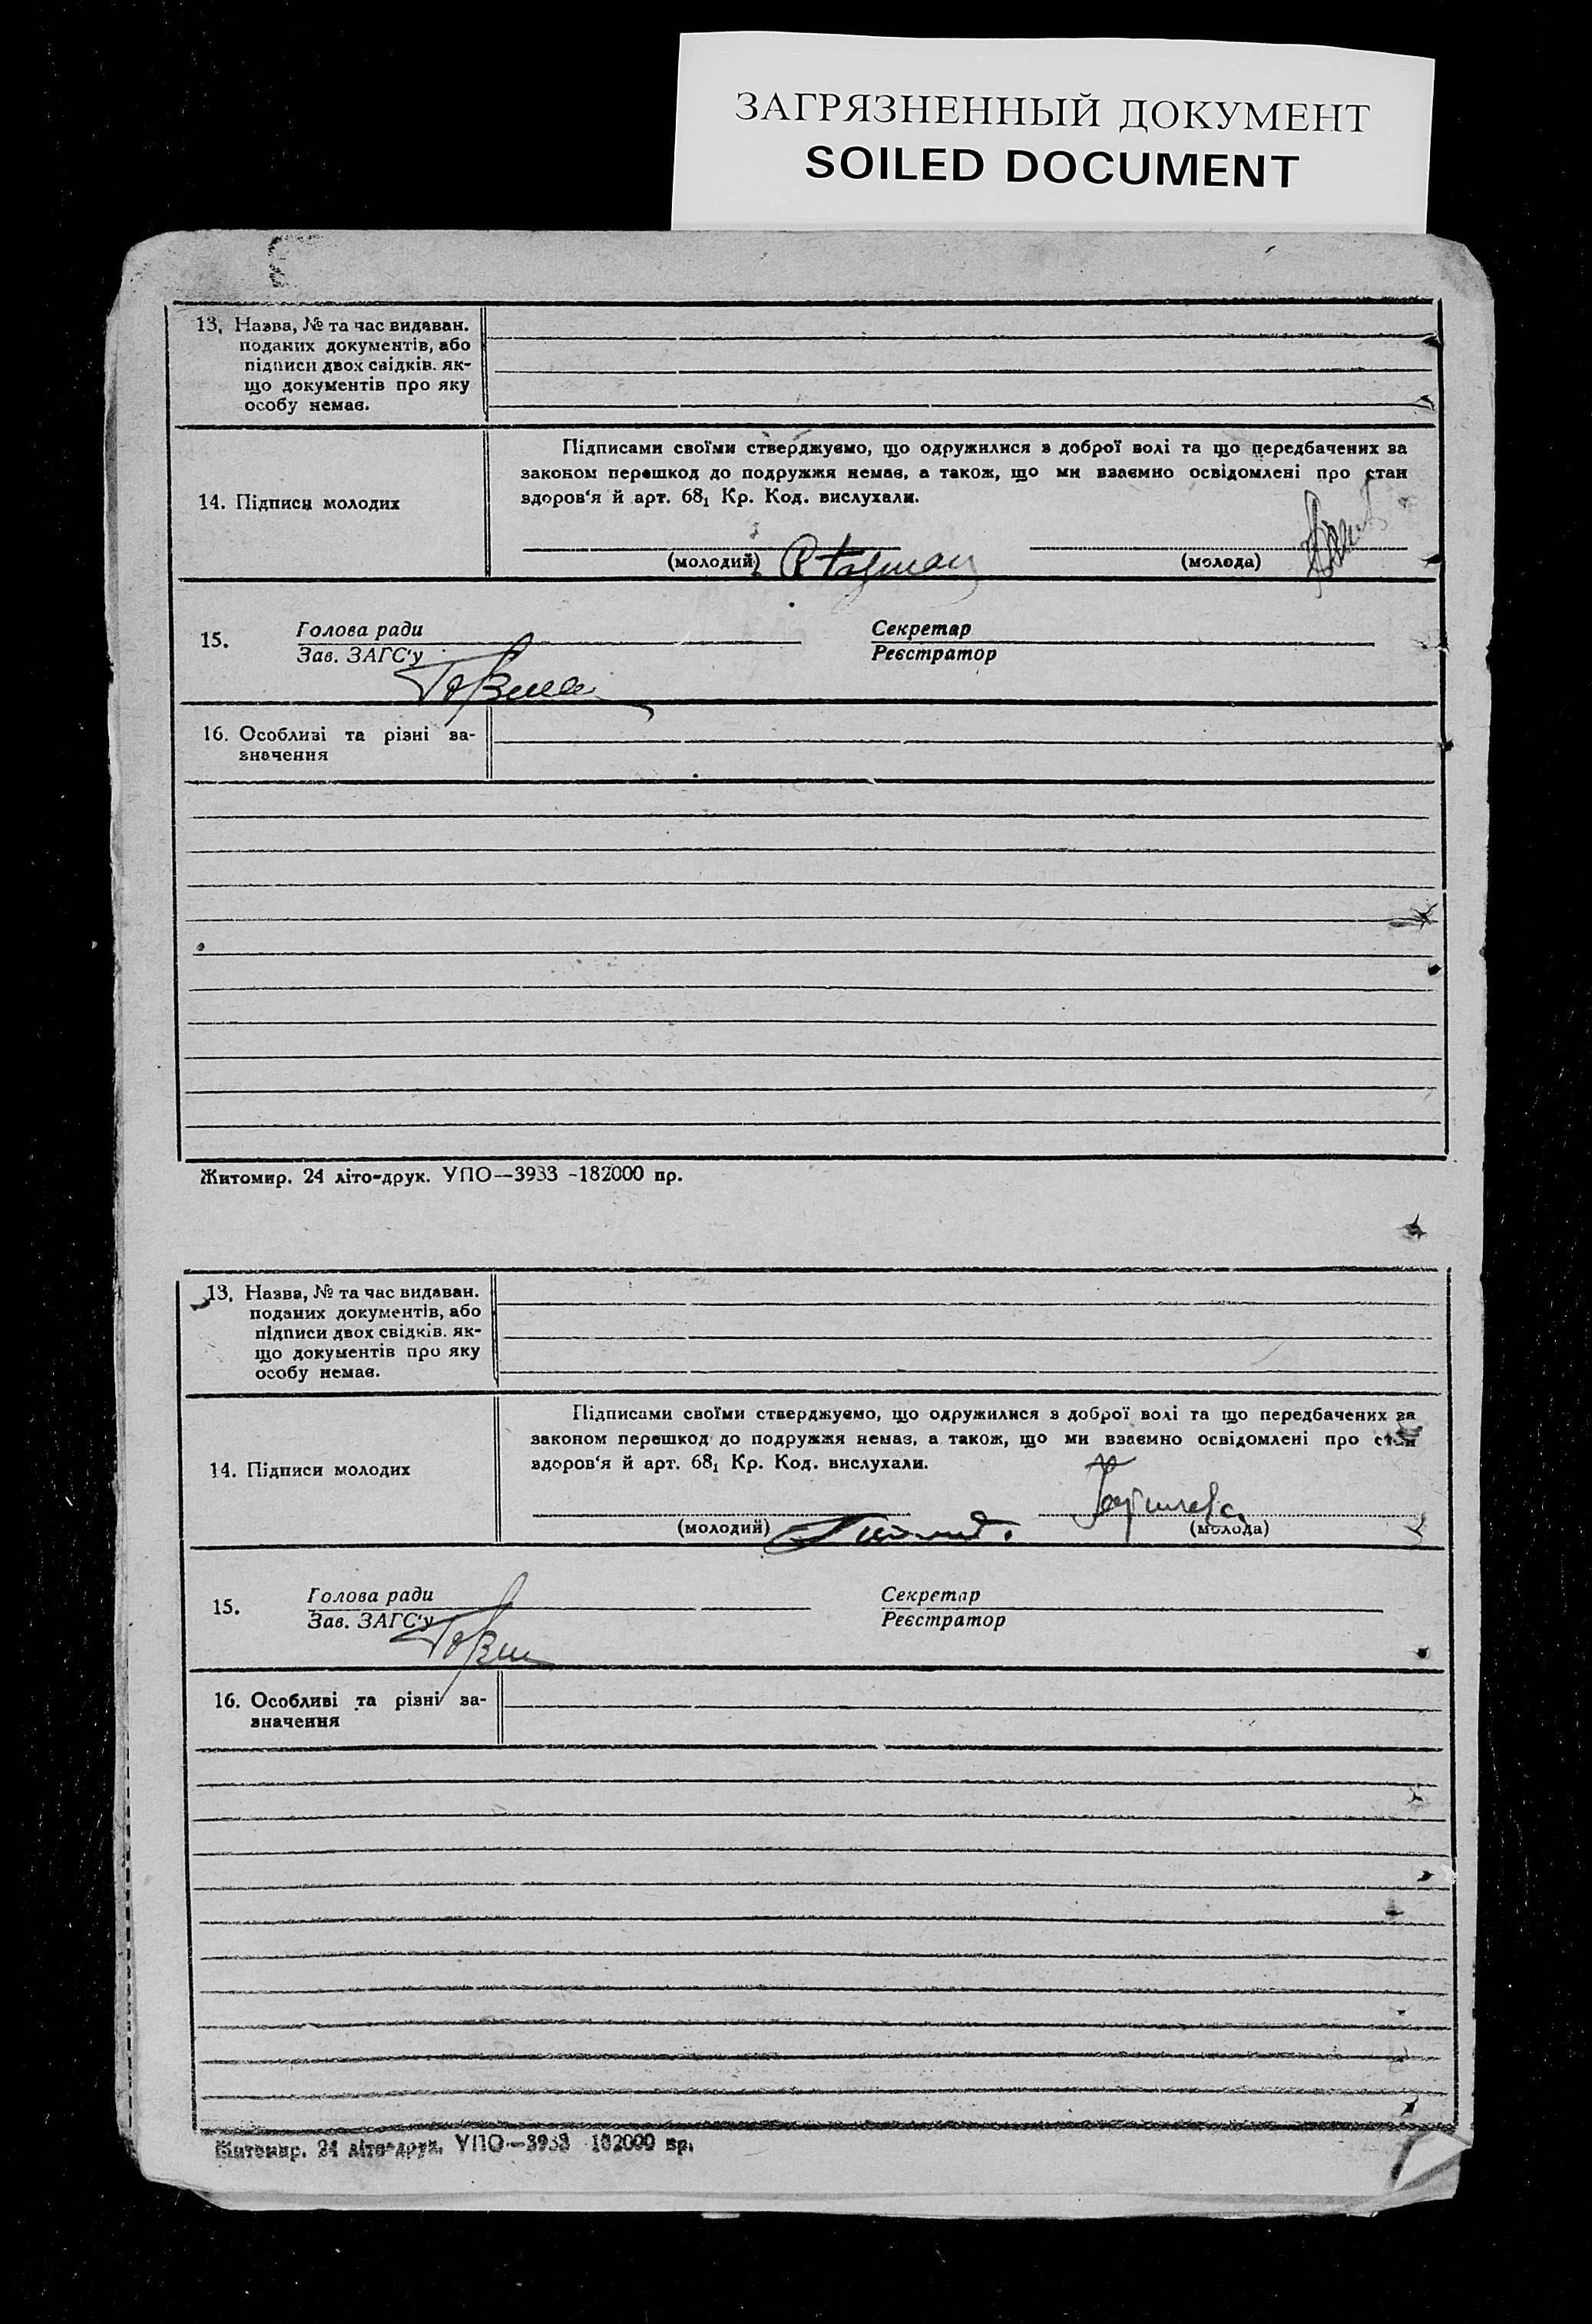 ЗАГРЯЗНЕННЫЙ ДОКУМЕНТ
SOILED DOCUMENT
13. Назва, № та час видаван.
поданих документів, або
підписи двох свідків. як-
що документів про яку
особу немає.
Підписами своїми стверджуємо, що одружилися з доброї волі та що передбачених за
законом перешкод до подружжя немає, а також, що ми взаємно освідомлені про стан
здоров'я й арт. 68₁ Кр. Код. вислухали.
14. Підписи молодих
(молодий)
(молода)
15.
Голова ради
Зав. ЗАГС'у
Секретар
Реєстратор
16. Особливі та різні за-
значення
Житомир. 24 літо-друк. УПО—3933 -182000 пр.
13. Назва, № та час видаван.
поданих документів, або
підписи двох свідків. як-
що документів про яку
особу немає.
Підписами своїми стверджуємо, що одружилися з доброї волі та що передбачених за
законом перешкод до подружжя немає, а також, що ми взаємно освідомлені про стан
здоров'я й арт. 68₁ Кр. Код. вислухали.
14. Підписи молодих
(молодий)
(молода)
15.
Голова ради
Зав. ЗАГС'у
Секретар
Реєстратор
16. Особливі та різні за-
значення
Житомир. 24 літо-друк. УПО—3933 182000 пр.